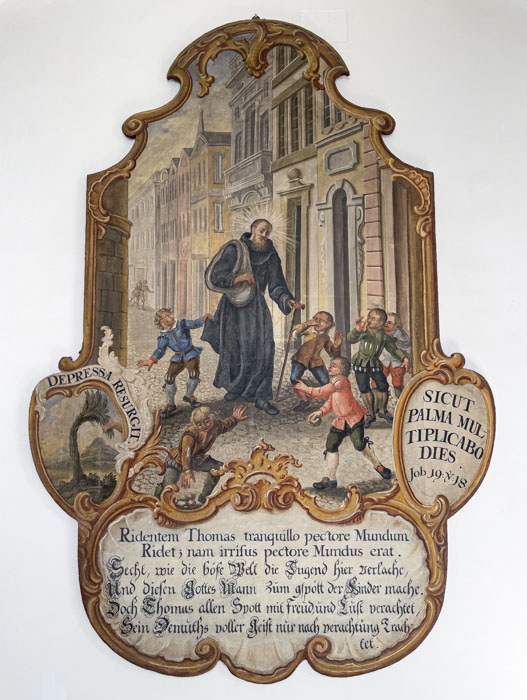 DEPRESSA RESURGIT
SICUT
PALMA MUL-
TIPLICABO
DIES
Job 19. v. 18
Ridentem Thomas tranquillo pectore Mundum
Ridet; nam irrisus pectore Mundus erat.
Secht, wie die böse Welt die Tugend hier verlache,
Und diesen Gottes Mann zum gspött der Kinder mache.
Doch Thomas allen Spott mit freüd und Lust verachtet,
Sein Demuths voller geist nur nach verachtung Trach
tet.